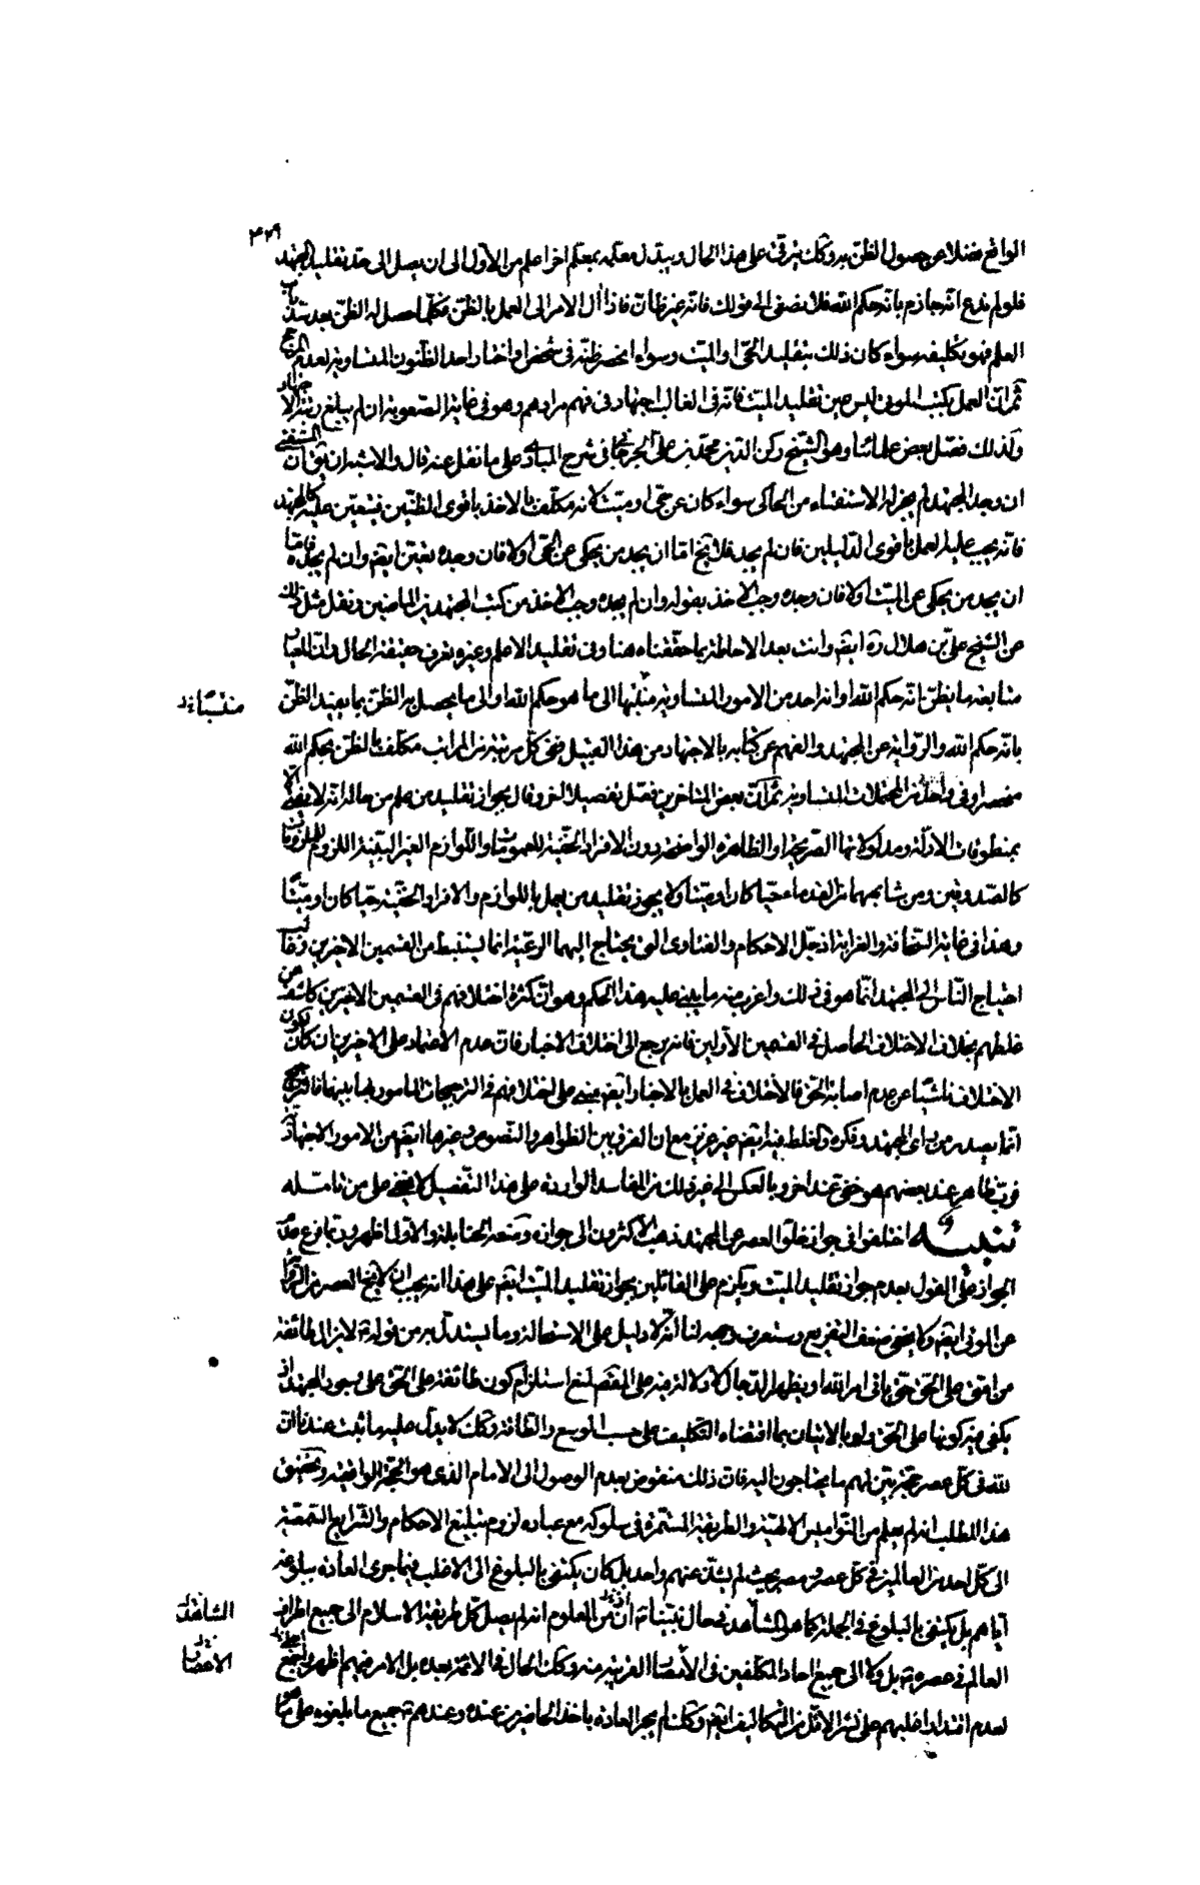 ۴۲۹
الواقع فضلا عن حصول الظن به وكك يترقى على هذا الحال ويتبدل معلمه بمعلم اخر اعلم من الاول الى ان يصل الى حد تقليد المجتهد
فلو لم يدع انه جازم بانه حكم الله فلا نصغى الى قولك فانه غير ظان فاذا ال الامر الى العمل بالظن فكلما حصل له الظن بعد سد باب
العلم فهو تكليفه سواء كان ذلك بتقليد الحى او الميت وسواء انحصر ظنه فى شخص او اختار احد الظنون المتساوية لعدم المرجح
ثم ان العمل بكتب الموتى ليس عين تقليد الميت فانه فى الغالب اجتهاد فى فهم مرادهم وهو فى غاية الصعوبة ان لم يبلغ رتبة الاجتهاد
ولذلك فصل بعض علمائنا وهو الشيخ ركن الدين محمد بن على الجرجانى فى شرح المبادى على ما نقل عنه قال والاشبه ان يق ان المستفتى
ان وجد المجتهد لم يجز له الاستفتاء من الحاكى سواء كان عن حى او ميت لانه مكلف بالاخذ باقوى الظنين فيتعين عليه كالمجتهد
فانه يجب عليه العمل باقوى الدليلين فان لم يجد فلا يخ اما ان يجد من يحكى عن الحى او لا فان وجده تعين ايضا وان لم يجده فاما
ان يجد من يحكى عن الميت او لا فان وجده وجب الاخذ بقوله وان لم يجده وجب الاخذ من كتب المجتهدين الماضين ونقل مثل ذلك
عن الشيخ على بن هلال ره ايضا وانت بعد الاحاطة بما حققناه هنا وفى تقليد الاعلم وغيره تعرف حقيقة الحال وان المعيار
متابعة ما يظن انه حكم الله او انه احد من الامور المتساوية منتسبها الى ما هو حكم الله او الى ما يحصل به الظن بما يفيد الظن
منتسبا
بانه حكم الله والرواية عن المجتهد والفهم عن كتابه بالاجتهاد من هذا القبيل فهى كل مرتبة من المراتب مكلف بالظن بحكم الله
منحصرا وفى واحد من المحتملات المتساوية ثم ان بعض المتاخرين فصل تفصيلا اخر وقال يجواز تقليد من علم من حاله انه لا يفتى الا
بمنطوقات الادلة ومدلولاتها الصريحة او الظاهرة الواضحة دون الافراد الخفية للعمومات واللوازم الغير البينة اللزوم للملزومات
كالصدوقين ومن شابههما من القدماء حيا كان او ميتا ولا يجوز تقليد من يعمل باللوازم والافراد الخفية حيا كان او ميتا
وهذا فى غاية السخافة والغرابة اذ جل الاحكام والفتاوى التى يحتاج اليها الرعية انما يستنبط من القسمين الاخيرين وغالب
احتياج الناس الى المجتهد انما هو فى ذلك واغرب منه ما يبنى عليه هذا الحكم وهو ان كثرة اختلافهم فى القسمين الاخيرين كاشف عن
غلطهم بخلاف الاختلاف الحاصل فى القسمين الاولين فانه يرجع الى اختلاف الاخبار فان عدم الاعتماد على الاخيرين ان كان لكون
الاختلاف ناشئا عن عدم اصابة الحق فالاختلاف فى العمل بالاخبار ايضا مبنى على اختلافهم فى الترجيحات المامور بها بينها فالترجيح
انما يصدر من راى المجتهد وفكره والغلط فيه ايضا غير عزيز مع ان الفرق بين الظواهر والنصوص وغيرها ايضا من الامور الاجتهادية
فرب ظاهر عند بعضهم هو خفى عند اخر وبالعكس الى غير ذلك من المفاسد الواردة على هذا التفصيل لا يخفى على من تامله
تنبيه اختلفوا فى جواز خلو العصر عن المجتهد فذهب الاكثرون الى جوازه ومنعه الحنابلة والاول اظهر وربما فرع عدم
الجواز على القول بعدم جواز تقليد الميت ويلزم على القائلين بجواز تقليد الميت ايضا على هذا انه يجب ان لا يخ العصر من الراوى
عن الموتى ايضا ولا يخفى ضعف التفريع وستعرف وجهه لنا انه لا دليل على الاستحالة وما يستدل به من قوله ص لا يزال طائفة
من امتى على الحق حتى ياتى امر الله او يظهر الدجال لا دلالة فيه على المقصود لمنع استلزام كون طائفة على الحق على وجود المجتهد اذ
يكفى فيه كونها على الحق ولو بالاتيان بما اقتضاه التكليف على حسب الوسع والطاقة وكك لا يدل عليه ما ثبت عندنا ان
لله فى كل عصر حجة يبين لهم ما يحتاجون اليه فان ذلك منقوض بعدم الوصول الى الامام الذى هو الحجة الواقعية وتحقيق
هذا المطلب انه لم يعلم من النواميس الالهية والطريقة المستمرة فى سلوكه مع عباده لزوم تبليغ الاحكام والشرايع التمتعية
الى كل احد من العالمين فى كل عصر ومصر بحيث لم يشذ عنهم واحد بل كان يكتفى بالبلوغ الى الاغلب فيما جرى العادة ببلوغه
اياهم بل يكتفى بالبلوغ فى الجملة كما هو المشاهد فى حال نبينا ص اذ من المعلوم انه لم يصل كل طريقة الاسلام الى جميع اطراف
الشاهد
العالم فى عصره ص بل ولا الى جميع احاد المكلفين فى الامصار القريبة منه وكك الحال فى الائمة بعده بل الامر فيهم اظهر واجلى
الاعصار
لعدم اقتدار اغلبهم على نشر الاقل من التكاليف ايضا وكك لم يجر العادة باخذ الحاضرين عنده وعندهم ع جميع ما بلغوه على ما هو